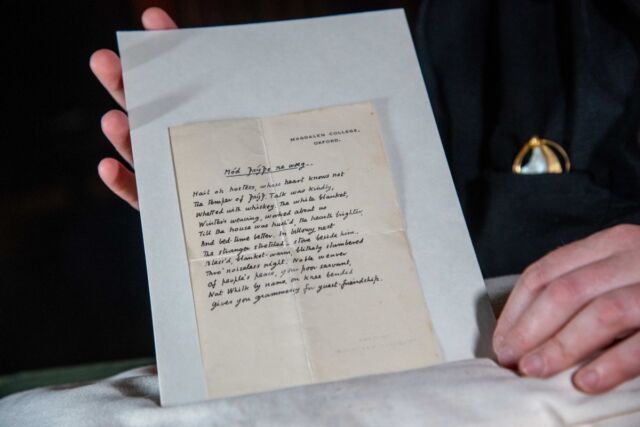 MAGDALEN COLLEGE,
OXFORD.
Mód Þrýþe ne wæg
Hail oh hostess, whose heart knows not
The temper of Þrýþ. Talk was kindly,
Whetted with whiskey. The white blanket,
Winter's weaving, worked about us
Till the house was hush'd, the hearth brighter,
And bed-time better. In billowy nest
The stranger stretched, stone beside him.
Bless'd, blanket-warm, blithely slumbered
Thro' noiseless night. Noble weaver
Of people's peace, your poor servant,
Nat Whilk by name, on knee bended
Gives you gramercy for guest-friendship.